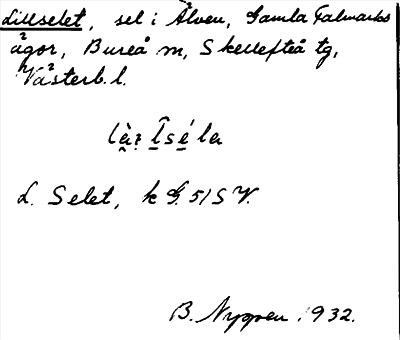 Lillselet, sel i Älven, Gamla Falmarks
ägor, Bureå sn, Skellefteå tg,
Västerb. l.
L. Selet, k G. 51 S V.
B. Nygren 1932.